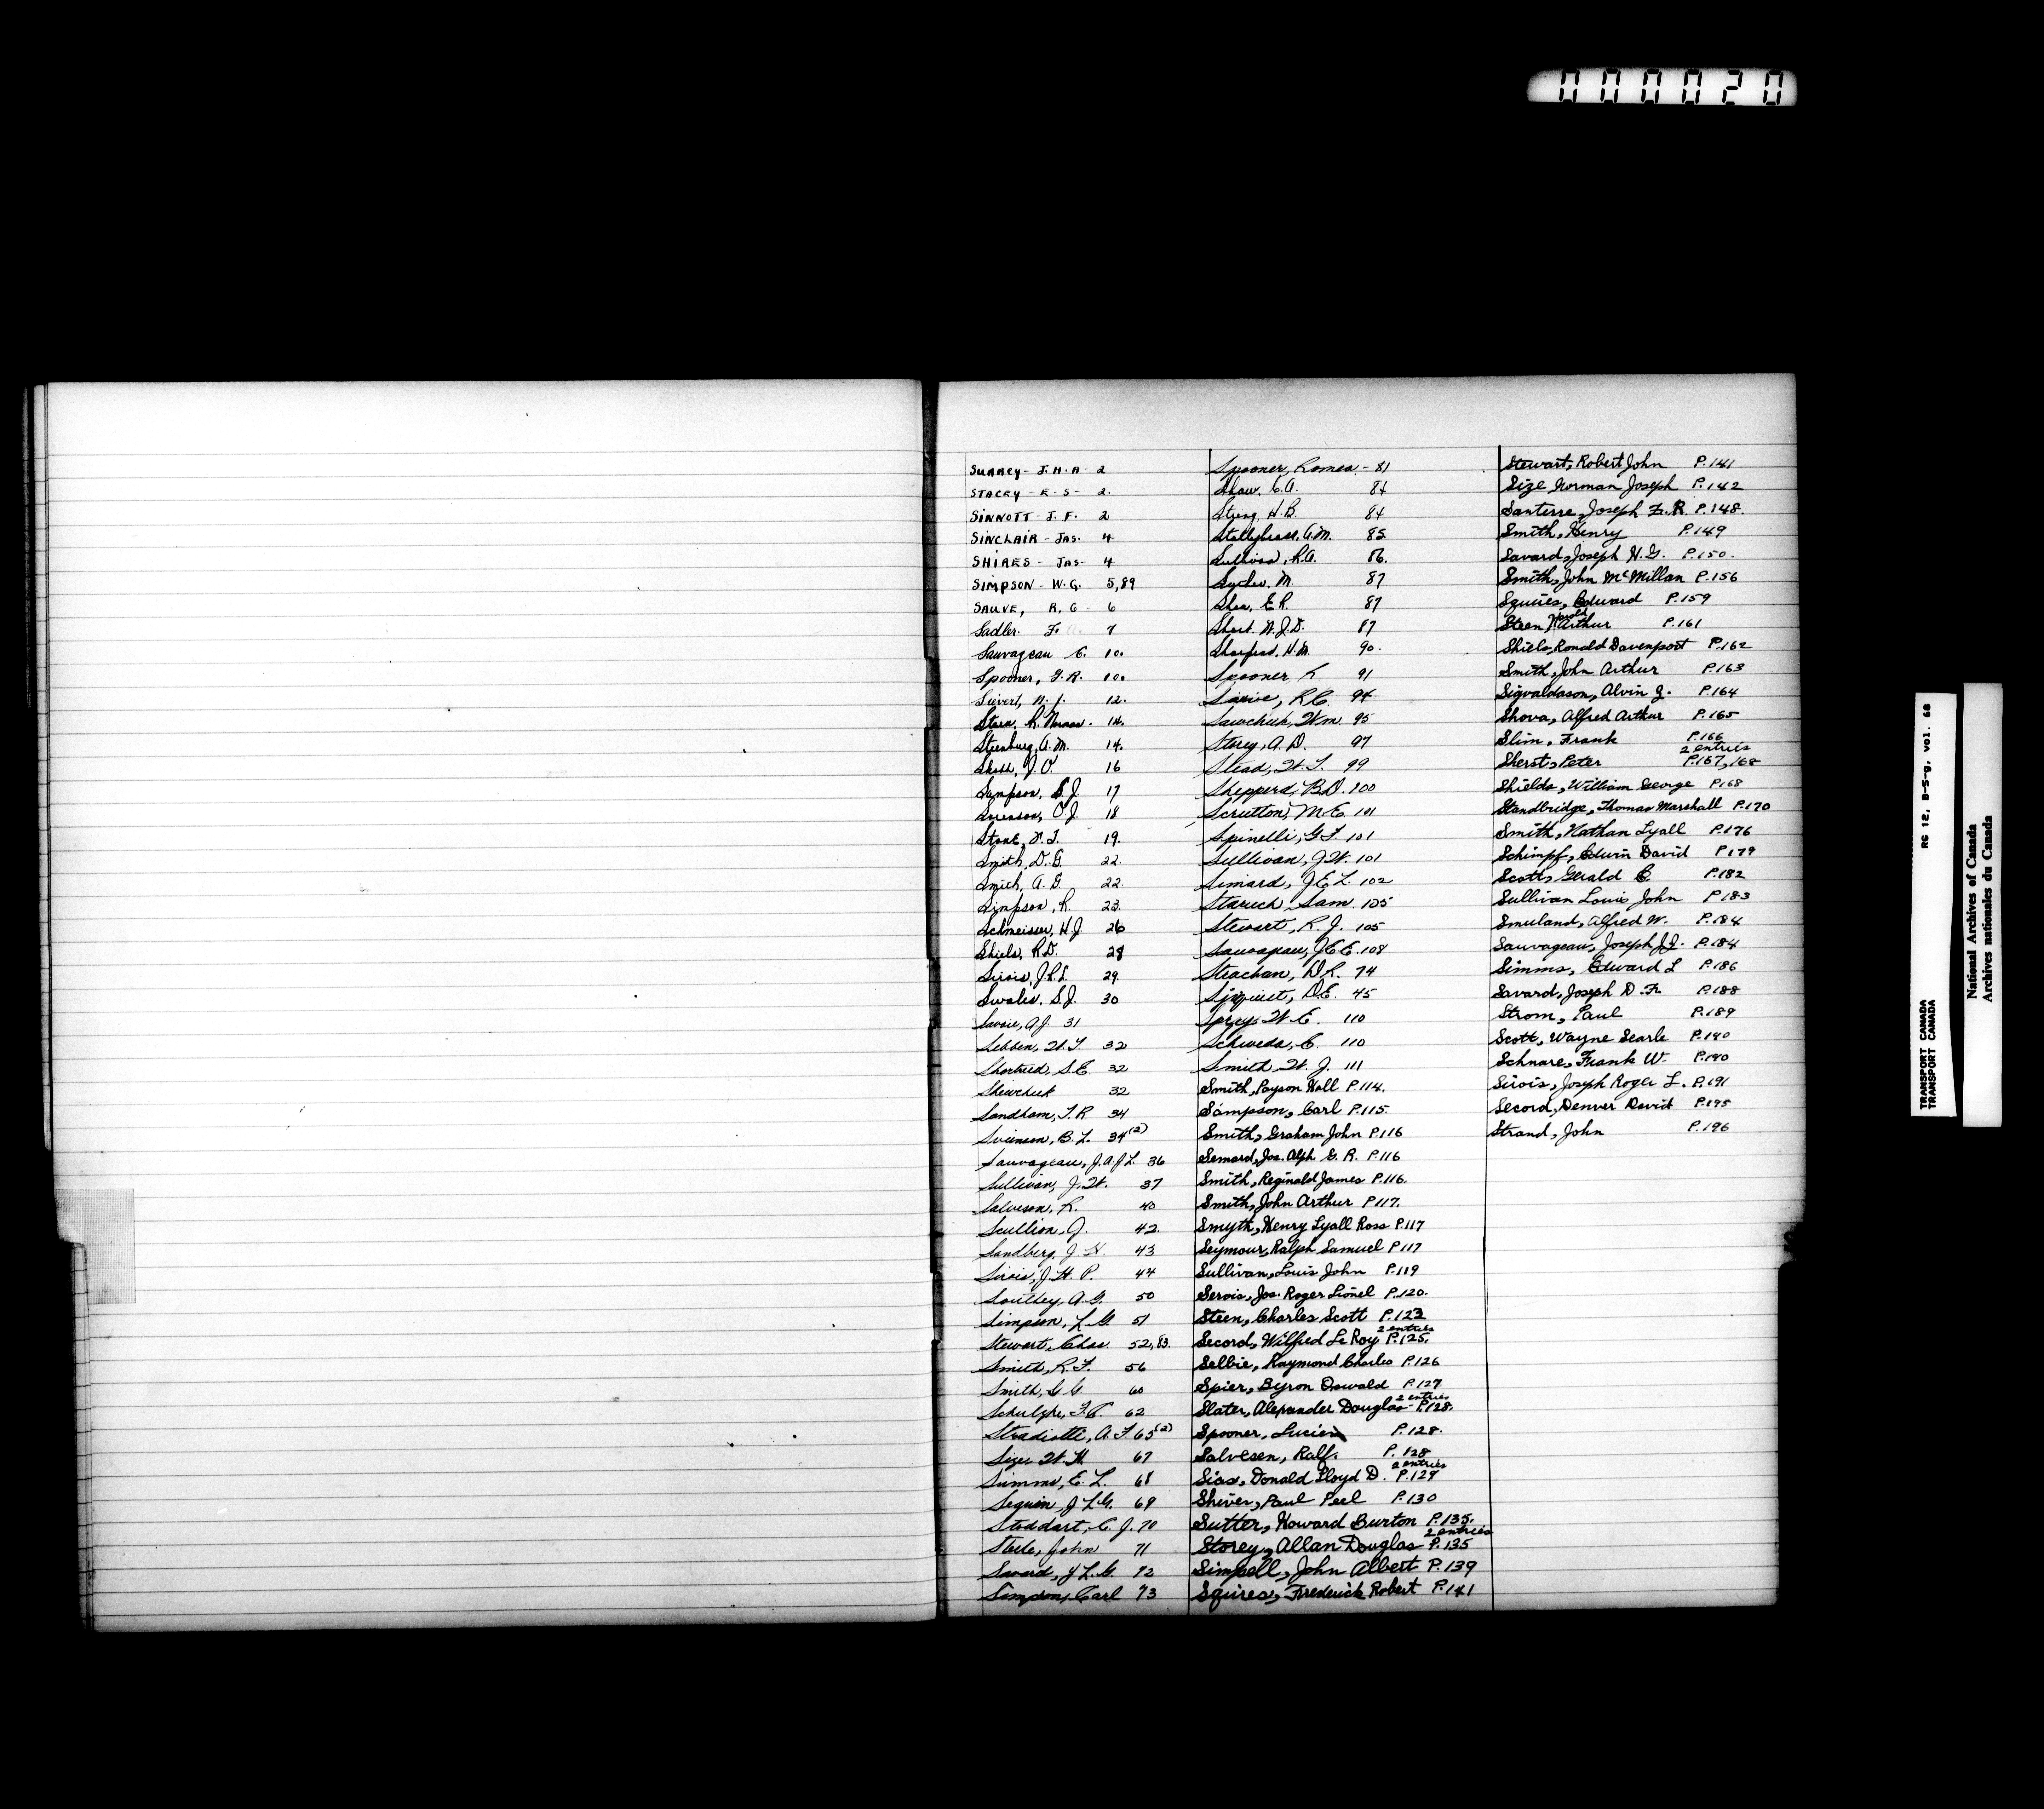 000020
SURREY - J.H.A - 2
STACEY - E - S - 2.
SINNOTT - J. F. 2
SINCLAIR - JAS. 4
SHIRES - JAS - 4
SIMPSON - W.G. 5,89
SAUVE, R. G - 6
Sadler. F. 7
Sauvageau C. 10.
Spooner, F.R. 10.
Sievert, N. J. 12.
14.
Steenburg, A.M. 14.
16
Sampson, S.J. 17
Sorenson, O.J. 18
Stone, 19.
Smith, D.G. 22.
Smith, A.G. 22.
Simpson, R. 23.
Schmeisser, H.J. 26
Shiels, R.D. 28
Sirois, J.R.L. 29.
Swales, S.J. 30
Savoie, A.J. 31
Sebben, W.T. 32
Shortreed, S.E. 32
Shewchuk 32
Sandham, T.R. 34
Svienson, B.L. 34(2)
Sauvageau, J.A.J.L. 36
Sullivan, J.W. 37
Salveson, R. 40
Scullion, J. 42.
Sandberg, J.H. 43
Sirois, J.H.P. 44
Southey, A.G. 50
Simpson, L.G. 51
Stewart, Chas. 52,83.
Smith, R.F. 56
Smith, G.G. 60
62
Stradiotti, A.F. 65(2)
Size W.H. 67
Simms, E.L. 68
Seguin, J.L.G. 69
Stoddart, C.J. 70
Steele, John 71
Savard, J.L.G. 72
Simpson, Carl 73
Spooner, Romeo - 81
Shaw, C.A. 84
String, H.B. 84
Stallybrass, A.M. 85
Sullivan, R.A. 86.
87
Shea, E.R. 87
Short. W.J.D. 87
H.M. 90.
Spooner R 91
Savoie, R.C. 94
Sawchuk, Wm. 95
Storey, A.D. 97
Stead, W.T. 99
Shepperd, B.D. 100
Scrutton, M.E. 101
Spinelli, G.F. 101
Sullivan, J.W. 101
Simard, J.E.L. 102
Staruch, Sam. 105
Stewart, R.J. 105
Sauvageau, J.C.E. 108
Strachan, D.R. 74
D.E. 45
Spray, W.E. 110
Schweda, C. 110
Smith, W.J. 111
Smith, Payson Hall P.114.
Sampson, Carl P.115.
Smith, Graham John P.116
Semard, Jos. Alph. G. R. P.116
Smith, Reginald James P.116.
Smith, John Arthur P.117.
Smyth, Henry Lyall Ross P.117
Seymour, Ralph Samuel P.117
Sullivan, Louis John P.119
Serois, Jos. Roger Lionel P.120.
Steen, Charles Scott P.123
Secord, Wilfred Le Roy 2 entries P.125.
Selbie, Raymond Charles P.126
Spier, Byron Oswald P.127
Slater, Alexander Douglas 2 entries P.128.
Spooner, Lucien P.128.
Salvesen, Ralf. P.128
Sias, Donald Lloyd D. 2 entries P.129
Shiver, Paul Peel P.130
Sutter, Howard Burton P.135.
Storey, Allan Douglas 2 entries P.135
Simpell, John Albert P.139
Squires, Frederick Robert P.141
Stewart, Robert John P.141
Size Norman Joseph P.142
Santerre, Joseph F.R. P.148.
Smith, Henry P.149
Savard, Joseph H.G. P.150.
Smith, John McMillan P.156
Squires, Edward P.159
Steen, Harold Arthur P.161
Shiels, Ronald Davenport P.162
Smith, John Arthur P.163
Sigvaldason, Alvin J. P.164
Shova, Alfred Arthur P.165
Slim, Frank P.166
2 entries
Sherst, Peter P.167,168
Shields, William George P.168
Standbridge, Thomas Marshall P.170
Smith, Nathan Lyall P.176
Schimpf, Edwin David P.179
Scott, Gerald C. P.182
Sullivan Louis John P.183
Smuland, Alfred W. P.184
Sauvageau, Joseph J.I. P.184
Simms, Edward L P.186
Savard, Joseph D.F. P.188
Strom, Paul P.189
Scott, Wayne Searle P.190
Schnare, Frank W. P.190
Sirois, Joseph Roger L. P.191
Secord, Denver David P.195
Strand, John P.196
TRANSPORT CANADA RG 12, B-5-g, vol. 68
TRANSPORT CANADA
National Archives of Canada
Archives nationales du Canada